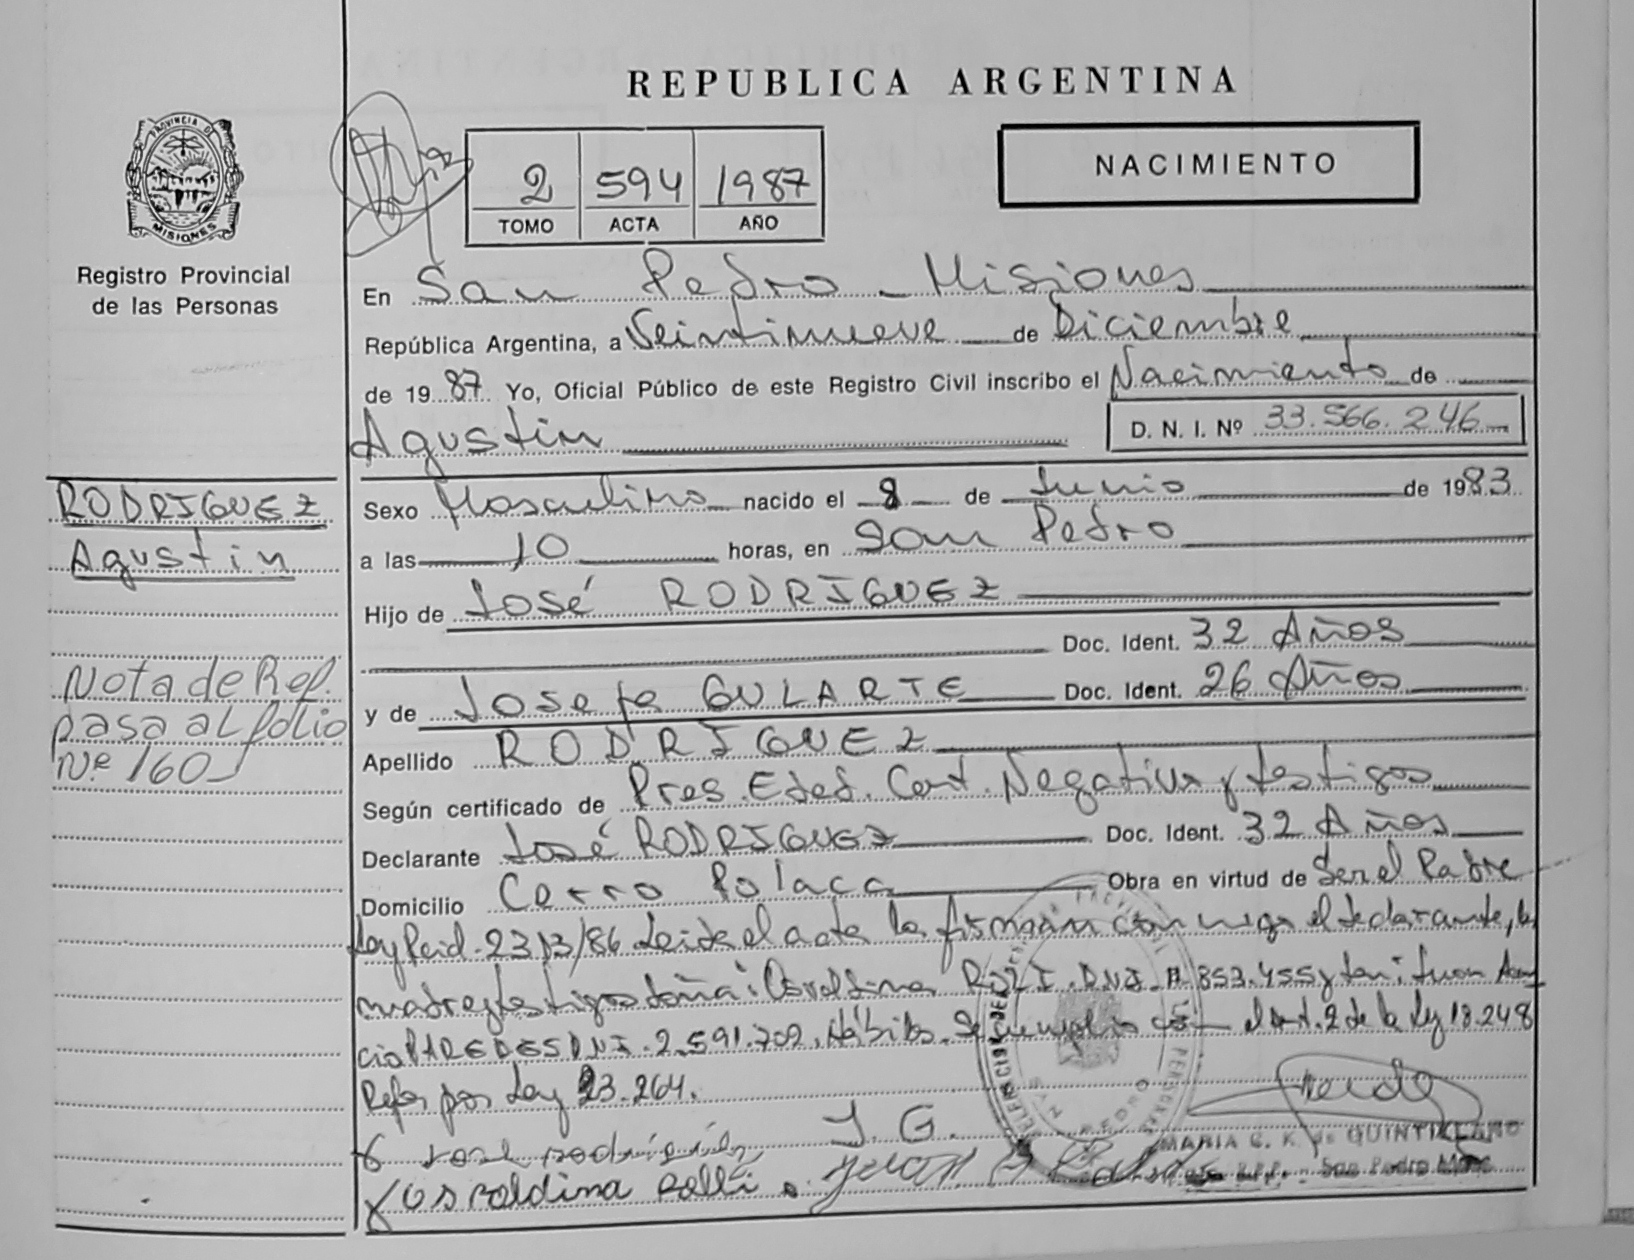 REPUBLICA ARGENTINA
PROVINCIA DE
MISIONES
Registro Provincial
de las Personas
2 594 1987
TOMO ACTA AÑO
NACIMIENTO
En San Pedro - Misiones
República Argentina, a Veintinueve de Diciembre
de 1987 Yo, Oficial Público de este Registro Civil inscribo el Nacimiento de
Agustin
D. N. I. Nº 33.566.246
RODRIGUEZ
Agustin
Sexo Masculino nacido el 8 de Junio de 1983
a las 10 horas, en San Pedro
Hijo de José RODRIGUEZ
Doc. Ident. 32 Años
Nota de Ref.
pasa al folio
Nº 160
y de Josefa GULARTE Doc. Ident. 26 Años
Apellido RODRIGUEZ
Según certificado de Pres. Edad. Cert. Negativa y testigos
Declarante José RODRIGUEZ Doc. Ident. 32 Años
Domicilio Cerro Polaca Obra en virtud de Ser el Padre
Ley 23/3/86 Leida el acta la firman conmigo el declarante, la
madre y testigos doña: Osvaldina DNI. 853.455 y don: Juan
PAREDES DNI. 2.591.702. Hábiles. Se cumplio con el art. 2 de la Ley 18.248
Refor por Ley 23.264.
J. G.
Jose rodriguez
Osvaldina
MARIA C. K. de QUINTILLANO
San Pedro Mnes.